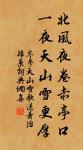 北風夜卷赤亭口
一夜天山雪更厚
岑參天山雪歌送蕭治
歸京詞典網